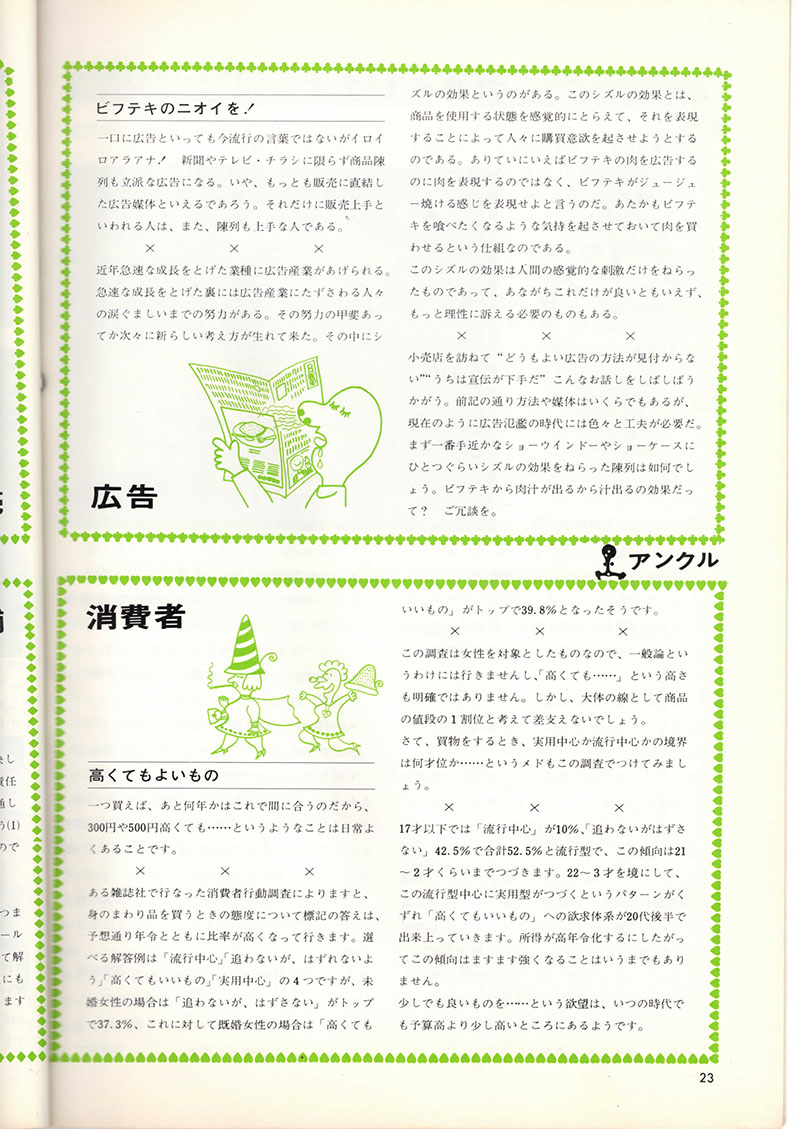 ビフテキのニオイを!
一口に広告といっても今流行の言葉ではないがイロイ
ロアラアナ! 新聞やテレビ・チラシに限らず商品陳
列も立派な広告になる。いや、もっとも販売に直結し
た広告媒体といえるであろう。それだけに販売上手と
いわれる人は、また、陳列も上手な人である。
× × ×
近年急速な成長をとげた業種に広告産業があげられる。
急速な成長をとげた裏には広告産業にたずさわる人々
の涙ぐましいまでの努力がある。その努力の甲斐あっ
てか次々に新らしい考え方が生れて来た。その中にシ
広告
ズルの効果というのがある。このシズルの効果とは、
商品を使用する状態を感覚的にとらえて、それを表現
することによって人々に購買意欲を起させようとする
のである。ありていにいえばビフテキの肉を広告する
のに肉を表現するのではなく、ビフテキがジュージュ
ー焼ける感じを表現せよと言うのだ。あたかもビフテ
キを喰べたくなるような気持を起させておいて肉を買
わせるという仕組なのである。
このシズルの効果は人間の感覚的な刺激だけをねらっ
たものであって、あながちこれだけが良いともいえず、
もっと理性に訴える必要のものもある。
× × ×
小売店を訪ねて“どうもよい広告の方法が見付からな
い”“うちは宣伝が下手だ”こんなお話しをしばしばう
かがう。前記の通り方法や媒体はいくらでもあるが、
現在のように広告氾濫の時代には色々と工夫が必要だ。
まず一番手近かなショーウインドーやショーケースに
ひとつぐらいシズルの効果をねらった陳列は如何でし
ょう。ビフテキから肉汁が出るから汁出るの効果だっ
て? ご冗談を。
アンクル
消費者
高くてもよいもの
一つ買えば、あと何年かはこれで間に合うのだから、
300円や500円高くても……というようなことは日常よ
くあることです。
× × ×
ある雑誌社で行なった消費者行動調査によりますと、
身のまわり品を買うときの態度について標記の答えは、
予想通り年令とともに比率が高くなって行きます。選
べる解答例は「流行中心」「追わないが、はずれないよ
う」「高くてもいいもの」「実用中心」の4つですが、未
婚女性の場合は「追わないが、はずさない」がトップ
で37.3%、これに対して既婚女性の場合は「高くても
いいもの」がトップで39.8%となったそうです。
× × ×
この調査は女性を対象としたものなので、一般論とい
うわけには行きませんし、「高くても……」という高さ
も明確ではありません。しかし、大体の線として商品
の値段の1割位と考えて差支えないでしょう。
さて、買物をするとき、実用中心か流行中心かの境界
は何才位か……というメドもこの調査でつけてみまし
ょう。
× × ×
17才以下では「流行中心」が10%、「追わないがはずさ
ない」42.5%で合計52.5%と流行型で、この傾向は21
〜2才くらいまでつづきます。22〜3才を境にして、
この流行型中心に実用型がつづくというパターンがく
ずれ「高くてもいいもの」への欲求体系が20代後半で
出来上っていきます。所得が高年令化するにしたがっ
てこの傾向はますます強くなることはいうまでもあり
ません。
少しでも良いものを……という欲望は、いつの時代で
も予算高より少し高いところにあるようです。
23